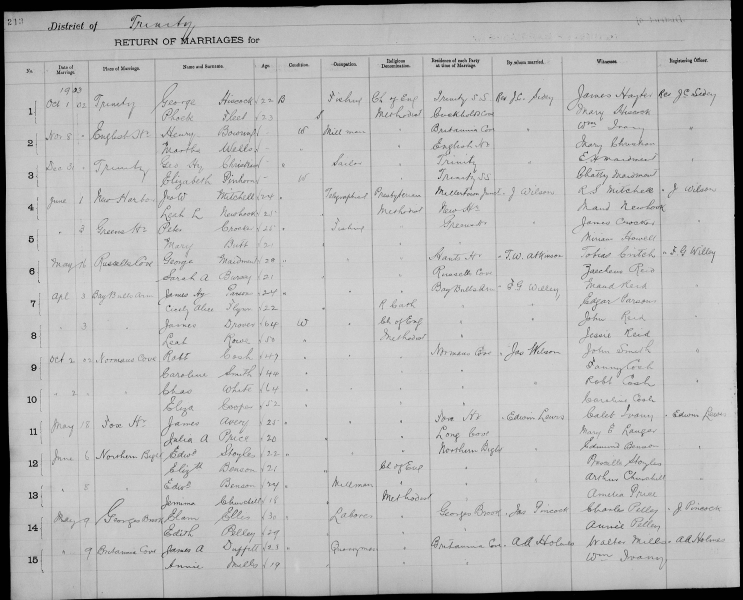 213
District of Trinity
RETURN OF MARRIAGES for
No. Date of Marriage. Place of Marriage. Name and Surname. Age. Condition. Occupation. Religious Denomination. Residence of each Party at time of Marriage. By whom married. Witnesses. Registering Officer.
1903
1 Oct 1 02 Trinity George Hiscock 22 B Fishing Ch of Eng Trinity S.S. Rev J.C. Sidey James Hayter Rev J C Sidey
Phoebe Fleet 23 S Methodist Cuckholds Cove Mary Hiscock
2 Nov 8 " English Hr Henry W Mill man " Britannia Cove " Wm Ivany "
Martha Wells " English Hr Mary Christian
3 Dec 31 " Trinity Geo Hy Christian " Sailor " Trinity " E H Maidment "
Elizabeth Pinhorn W Trinity SS Maidment
4 June 1 New Harbor Mitchell 24 " Telegraphist Presbyterian J Wilson Mitchell " J Wilson
Leah L Newhook 25 Methodist New Hr Maud Newhook
5 " 3 Greens Hr Peter Crocker 25 " Fishing " " James Crocker "
Mary Butt 21 " Miriam Howell
6 May 16 Russells Cove George Maidment 29 " " " Hants Hr " T.W. Atkinson Tobias Critch " F G Willey
Sarah A 21 " Russells Cove Zacheus Reid
7 Apl 3 Bay Bulls Arm James Hy Parson 24 " " " Bay Bulls Arm " F G Willey Maud Reid "
Cicely Alice Flynn 22 R Cath " Edgar Parsons
8 " 3 " James Drover 64 W " Ch of Eng " " John Reid "
Leah Rowe 50 Methodist " Jessie Reid
9 Oct 2 02 Normans Cove Robt Cosh 49 " " " Normans Cove " Jas Wilson John Smith "
Caroline Smith 44 " " Fanny Cosh
10 " 2 " " Chas White 64 " " " " " Robt Cosh "
Eliza Cooper 52 " " Caroline Cosh
11 May 18 Fox Hr James Avery 25 " " " Fox Hr " Edwin Lewis Caleb Ivany " Edwin Lewis
Julia A Price 20 " Long Cove Mary E Langer
12 June 6 Northern Bight Edwd Stoyles 22 " " " Northern Bight " Edmund Benson "
Elizth Benson 21 Ch of Eng " Stoyles
13 " 8 " Edwd Benson 24 " Millman " " " Arthur Churchill "
Jemima Churchill 18 Methodist " Amelia Price
14 May 9 Georges Brook Elam Ellis 30 " Laborer " Georges Brook " Jas Pincock Charles Pelley " J Pincock
Edith Pelley 29 " " Annie Pelley
15 " 9 Britannia Cove James A Duffett 23 " Quarryman " Britannia Cove " A A Holmes Walter Mills " A A Holmes
Annie Mills 19 " " Wm Ivany